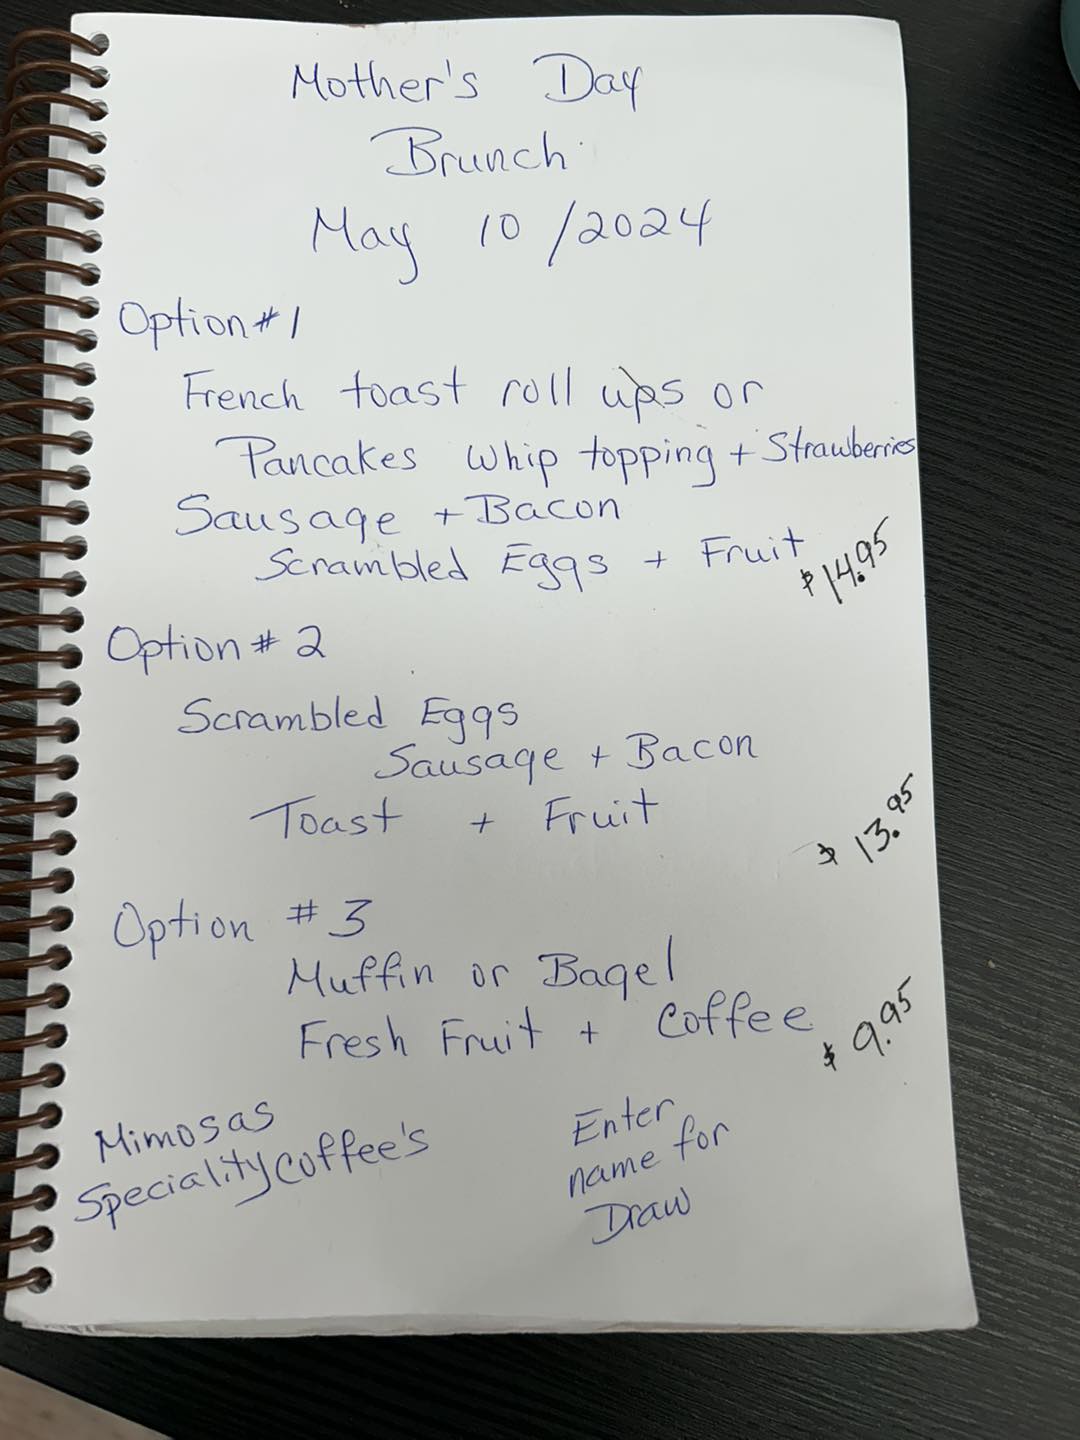 Mother's Day
Brunch
May 10/2024
Option #1
French toast roll ups or
Pancakes Whip topping + Strawberries
Sausage + Bacon
Scrambled Eggs + Fruit $14.95
Option # 2
Scrambled Eggs
Sausage + Bacon
Toast + Fruit
$13.95
Option #3
Muffin or Bagel
Fresh Fruit + Coffee $9.95
Mimosas
Speciality Coffee's
Enter
name for
Draw